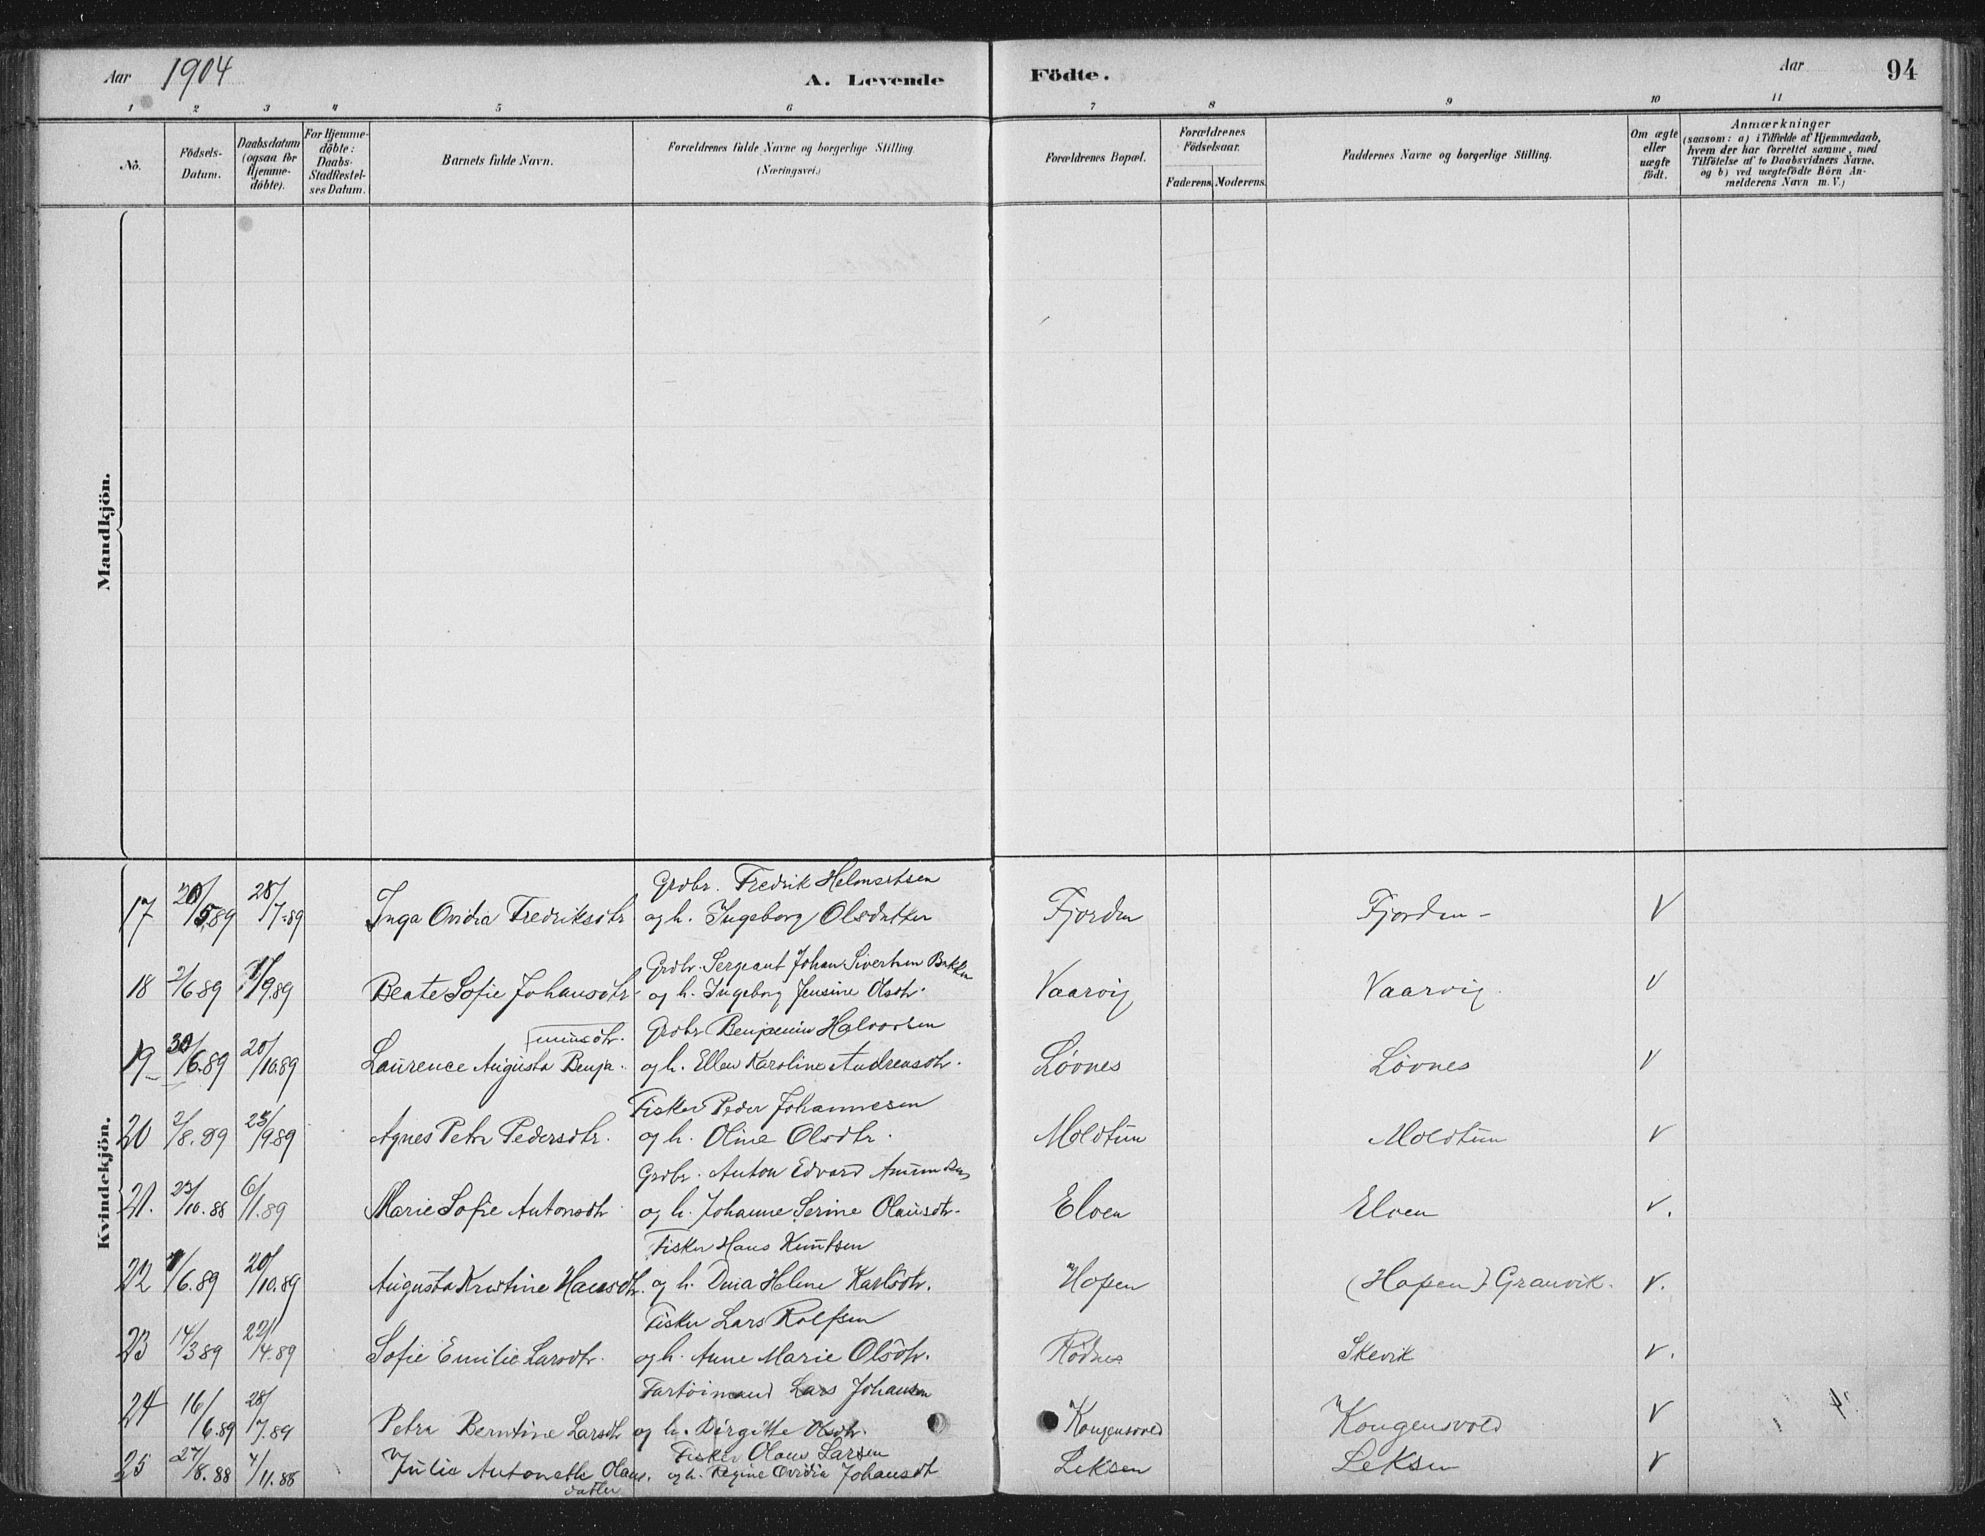 Aar 1904 A. Levende Födte. Aar 94
1 2 3 4 5 6 7 8 9 10 11
No.
Födsels-Datum.
Daabsdatum (ogsaa for Hjemme-döbte).
For Hjemme-döbte: Daabs-Stadfæstel-ses Datum.
Barnets fulde Navn.
Forældrenes fulde Navne og borgerlige Stilling. (Næringsvei.)
Forældrenes Bopæl.
Forældrenes Födselsaar.
Faderens. Moderens.
Faddernes Navne og borgerlige Stilling.
Om ægte eller uægte födt.
Anmærkninger (saasom: a) i Tilfælde af Hjemmedaab, hvem der har forrettet samme, med Tilföielse af to Daabsvidners Navne, og b) ved uægtefödte Börn An-melderens Navn m. V.)
Mandkjön.
Kvindekjön.
Grdbr. Fredrik Helmertsen
17 20/5.89 28/7-89 Inga Ovidia Fredriksdtr og h. Ingeborg Olsdatter Fjorden Fjorden - V
Grdbr. Sergeant Johan Sivertsen Bakken
18 2/6.89 /9.89 Beate Sofie Johansdtr. og h. Ingeborg Jensine Olsdtr. Vaarvig Vaarvig. V
minsdtr. Grdbr Benjamin Halvorsen
19 30/6.89 20/10.89 Laurence Augusta Benja. og h. Ellen Karoline Andreasdtr. Løvnes Løvnes V
Fisker Peder Johannesen
20 2/8.89 25/9.89 Agnes Petra Pedersdtr. og h. Oline Olsdtr. Moldtun Moldtun V
Grdbr. Anton Edvard
21. 23/10.88 6/1.89 Marie Sofie Antonsdtr og h. Johanne Serine Olausdtr. Elven Elven V.
Fisker Hans Knutsen
22 /6.89 20/10.89 Augusta Kristine Hansdtr. og h. Helene Karlsdtr. Hopen (Hopen) Granvik. V.
Fisker Lars Rolfsen
23 14/3 89 22/4.89 Sofie Emilie Larsdtr. og h. Anne Marie Olsdtr. Rødnes Skevik V.
Lars Johansen
24 16/6.89 28/7.89 Petra Berntine Larsdtr og h. Birgitte Olsdtr. Kongensvold Kongensvold V
Fisker Olaus Larsen
25 27/8.88 4/11.88 Julie Antonette Olaus. og h. Regine Ovidia Johansdt Leksen Leksen V
datter